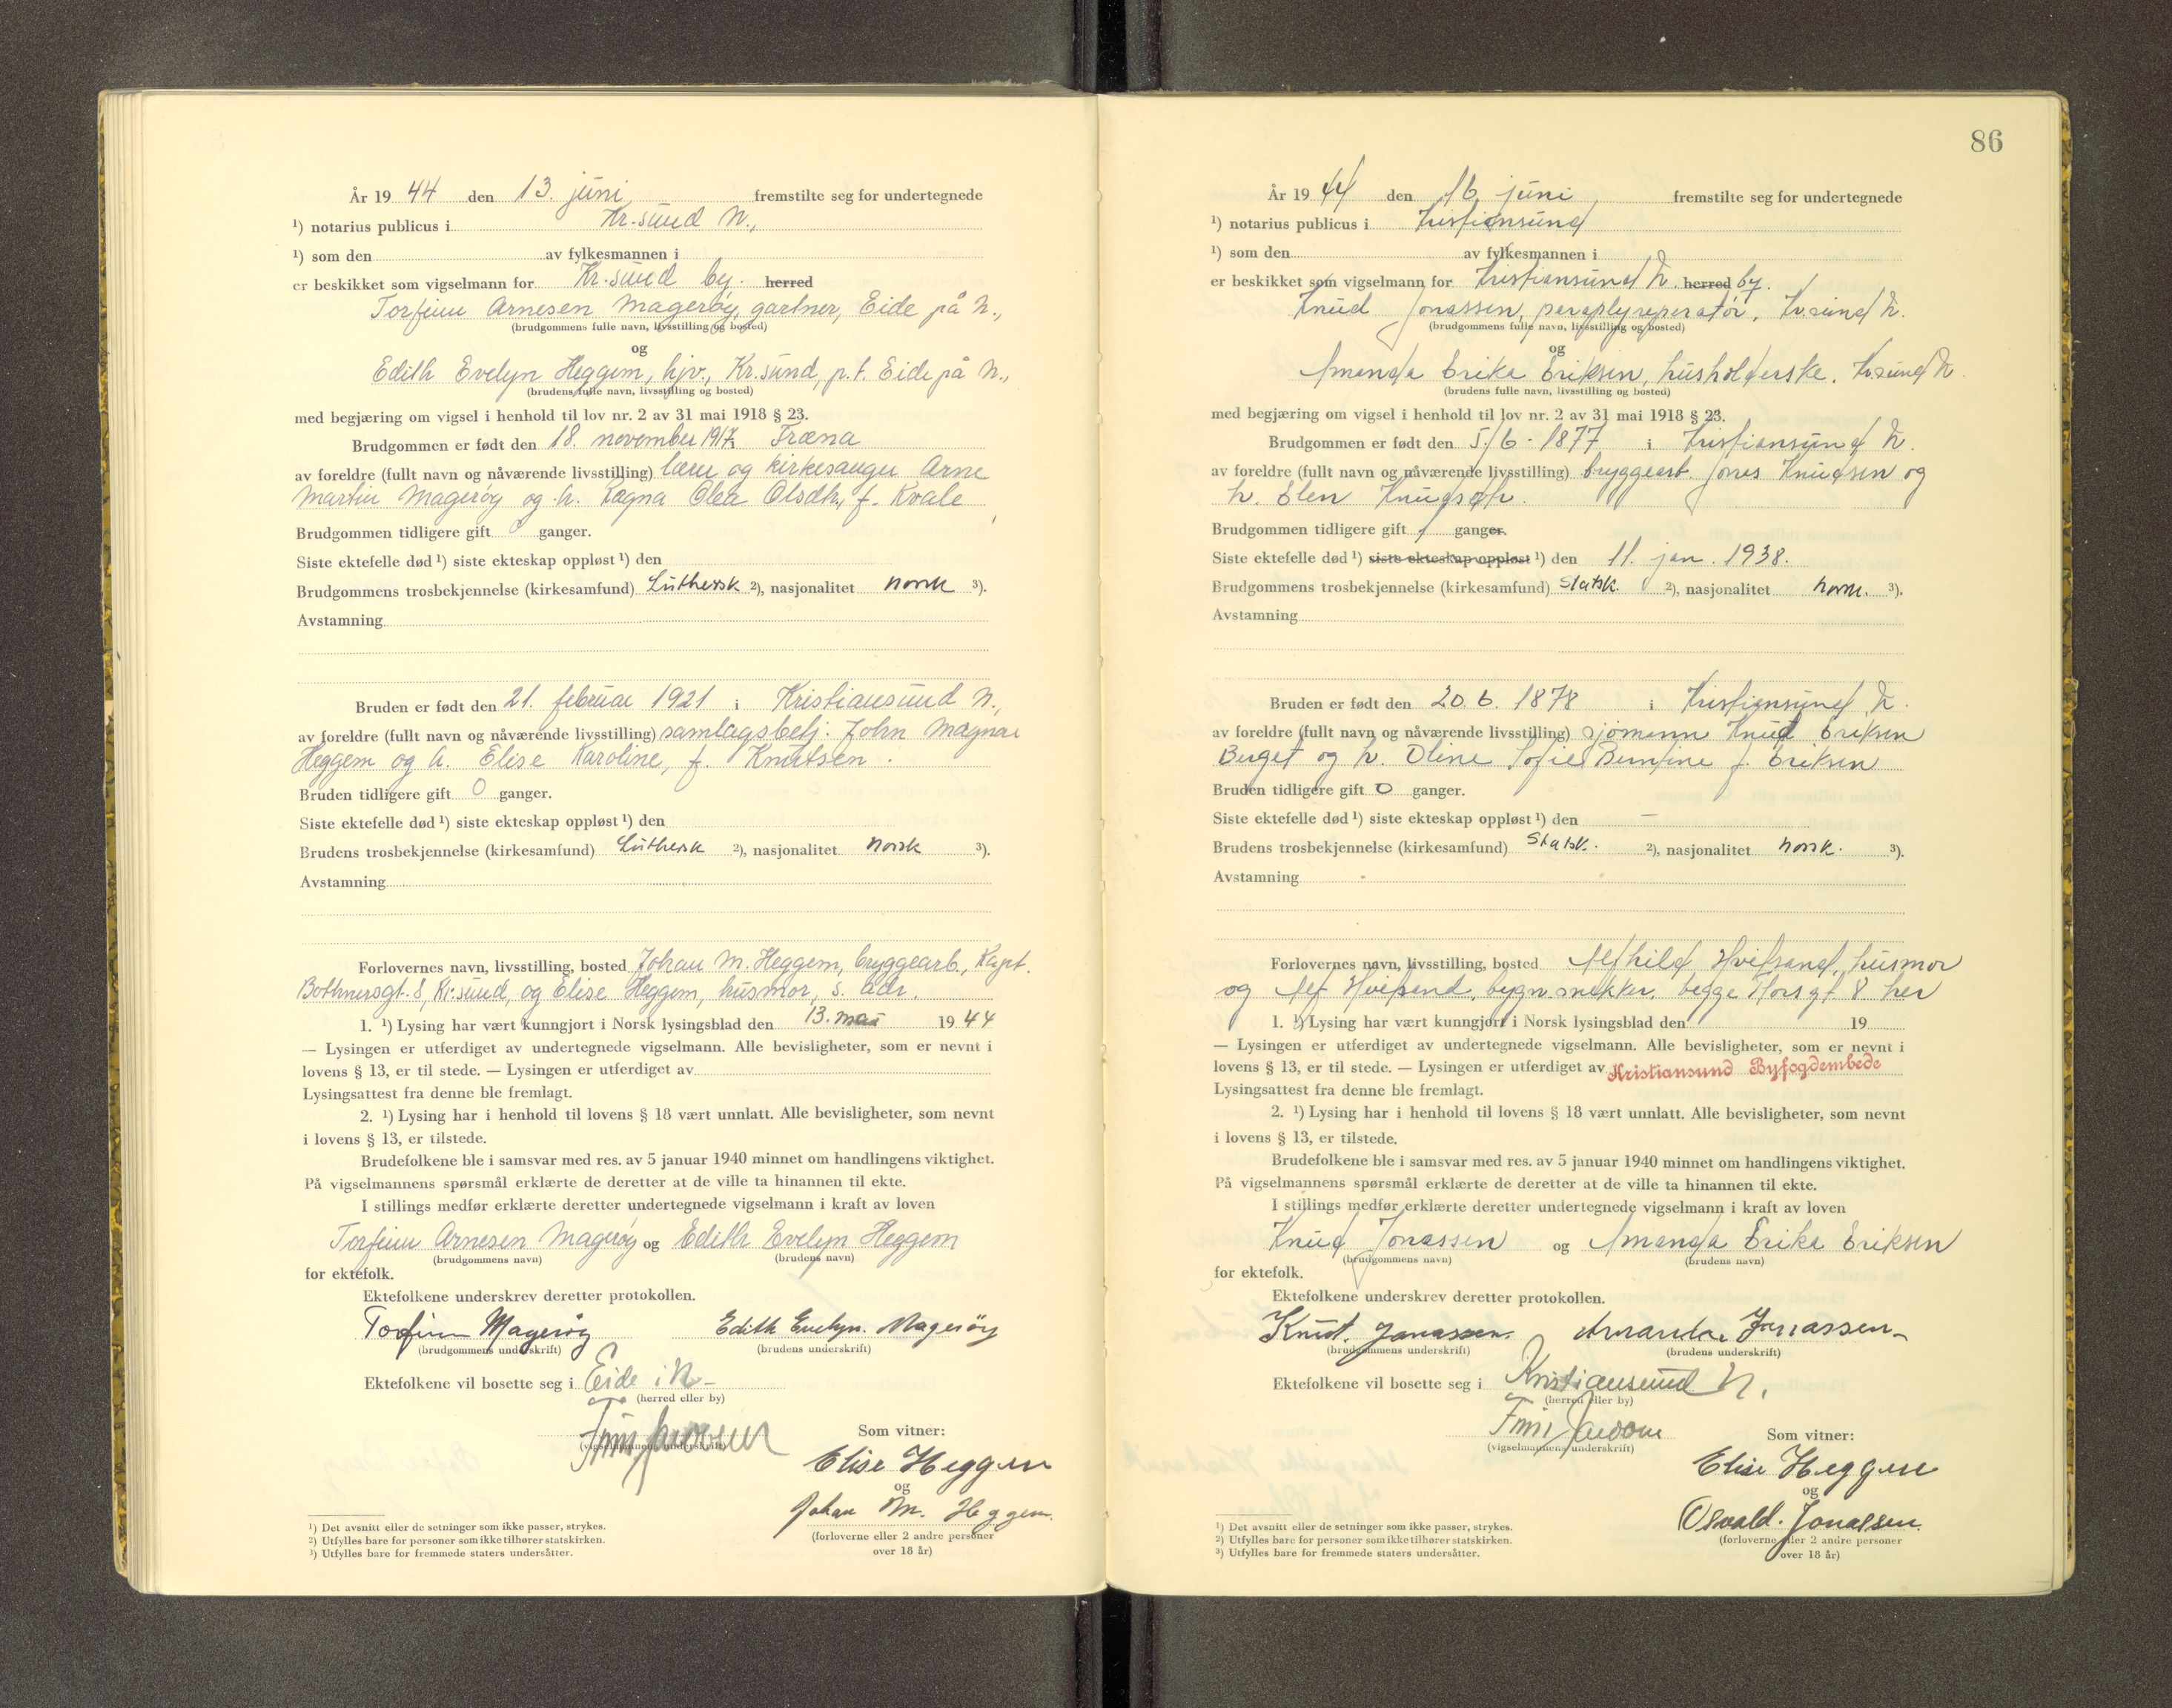 År 19 44 den 13. juni fremstilte seg for undertegnede
¹) notarius publicus i Kr.sund N.,
¹) som den av fylkesmannen i
er beskikket som vigselmann for Kr.sund by. herred
Torfinn Arnesen Magerøy, gartner, Eide på N.,
(brudgommens fulle navn, livsstilling og bosted)
og
Edith Evelyn Heggem, hjv., Kr.sund, p.t. Eide på N.,
(brudens fulle navn, livsstilling og bosted)
med begjæring om vigsel i henhold til lov nr. 2 av 31 mai 1918 § 23.
Brudgommen er født den 18. november 1917 i Træna
av foreldre (fullt navn og nåværende livsstilling) lærer og kirkesanger Arne
Martin Magerøy og h. Ragna Olea Olsdtr, f. Kvale
Brudgommen tidligere gift 0 ganger.
Siste ektefelle død ¹) siste ekteskap oppløst ¹) den
Brudgommens trosbekjennelse (kirkesamfund) Luthersk ²), nasjonalitet norsk ³).
Avstamning
Bruden er født den 21. februar 1921 i Kristiansund N.,
av foreldre (fullt navn og nåværende livsstilling) samlagsbetj. John Magnar
Heggem og h. Elise Karoline, f. Knutsen.
Bruden tidligere gift 0 ganger.
Siste ektefelle død ¹) siste ekteskap oppløst ¹) den
Brudens trosbekjennelse (kirkesamfund) Luthersk ²), nasjonalitet norsk ³).
Avstamning
Forlovernes navn, livsstilling, bosted Johan M. Heggem, bryggearb., Kapt.
Bothnersgt. 8, Kr.sund, og Elise Heggem, husmor, s. adr.
1. ¹) Lysing har vært kunngjort i Norsk lysingsblad den 13. mai 19 44
— Lysingen er utferdiget av undertegnede vigselmann. Alle bevisligheter, som er nevnt i
lovens § 13, er til stede. — Lysingen er utferdiget av
Lysingsattest fra denne ble fremlagt.
2. ¹) Lysing har i henhold til lovens § 18 vært unnlatt. Alle bevisligheter, som nevnt
i lovens § 13, er tilstede.
Brudefolkene ble i samsvar med res. av 5 januar 1940 minnet om handlingens viktighet.
På vigselmannens spørsmål erklærte de deretter at de ville ta hinannen til ekte.
I stillings medfør erklærte deretter undertegnede vigselmann i kraft av loven
Torfinn Arnesen Magerøy og Edith Evelyn Heggem
(brudgommens navn) (brudens navn)
for ektefolk.
Ektefolkene underskrev deretter protokollen.
Torfinn Magerøy Edith Evelyn. Magerøy
(brudgommens underskrift) (brudens underskrift)
Ektefolkene vil bosette seg i Eide i N –
(herred eller by)
(vigselmannens underskrift)
Som vitner:
Elise Heggem
og
Johan M. Heggem.
(forloverne eller 2 andre personer
over 18 år)
¹) Det avsnitt eller de setninger som ikke passer, strykes.
²) Utfylles bare for personer som ikke tilhører statskirken.
³) Utfylles bare for fremmede staters undersåtter.
86
År 19 44 den 16. juni fremstilte seg for undertegnede
¹) notarius publicus i Kristiansund
¹) som den av fylkesmannen i
er beskikket som vigselmann for Kristiansund N. herred by.
Knud Jonassen, paraplyreperatør, Kr.sund N.
(brudgommens fulle navn, livsstilling og bosted)
og
Amanda Erika Eriksen, husholderske, Kr.sund N.
(brudens fulle navn, livsstilling og bosted)
med begjæring om vigsel i henhold til lov nr. 2 av 31 mai 1918 § 23.
Brudgommen er født den 5/6 - 1877 i Kristiansund N.
av foreldre (fullt navn og nåværende livsstilling) bryggearb. Jonas Knudsen og
h. Elen Knudsdtr.
Brudgommen tidligere gift 1 ganger.
Siste ektefelle død ¹) siste ekteskap oppløst ¹) den 11. jan. 1938.
Brudgommens trosbekjennelse (kirkesamfund) Statsk. ²), nasjonalitet norsk. ³).
Avstamning
Bruden er født den 20. 6. 1878 i Kristiansund N.
av foreldre (fullt navn og nåværende livsstilling) sjømann Knud Eriksen
og h. Oline Sofie f. Eriksen
Bruden tidligere gift 0 ganger.
Siste ektefelle død ¹) siste ekteskap oppløst ¹) den —
Brudens trosbekjennelse (kirkesamfund) Statsk. ²), nasjonalitet norsk. ³).
Avstamning
Forlovernes navn, livsstilling, bosted Alfhild husmor
og Alf bygn.snekker, begge 8 her
1. ¹) Lysing har vært kunngjort i Norsk lysingsblad den 19
— Lysingen er utferdiget av undertegnede vigselmann. Alle bevisligheter, som er nevnt i
lovens § 13, er til stede. — Lysingen er utferdiget av Kristiansund Byfogdembede
Lysingsattest fra denne ble fremlagt.
2. ¹) Lysing har i henhold til lovens § 18 vært unnlatt. Alle bevisligheter, som nevnt
i lovens § 13, er tilstede.
Brudefolkene ble i samsvar med res. av 5 januar 1940 minnet om handlingens viktighet.
På vigselmannens spørsmål erklærte de deretter at de ville ta hinannen til ekte.
I stillings medfør erklærte deretter undertegnede vigselmann i kraft av loven
Knud Jonassen og Amanda Erika Eriksen
(brudgommens navn) (brudens navn)
for ektefolk.
Ektefolkene underskrev deretter protokollen.
Knut. Jonassen. Amanda Jonassen –
(brudgommens underskrift) (brudens underskrift)
Ektefolkene vil bosette seg i Kristiansund N.
(herred eller by)
(vigselmannens underskrift)
Som vitner:
Elise Heggem
og
Osvald. Jonassen.
(forloverne eller 2 andre personer
over 18 år)
¹) Det avsnitt eller de setninger som ikke passer, strykes.
²) Utfylles bare for personer som ikke tilhører statskirken.
³) Utfylles bare for fremmede staters undersåtter.